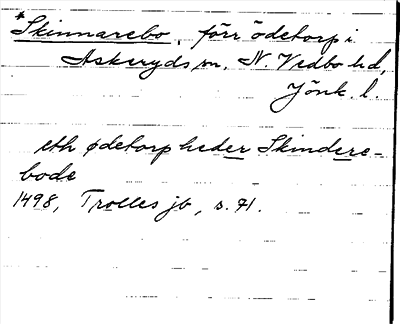 *Skinnarebo, förr ödetorp i
Askeryds sn, N Vedbo hd,
Jönk. l.
eth ødetorp heder Skindere-
bode
1498, Trolles jb, s. 71.